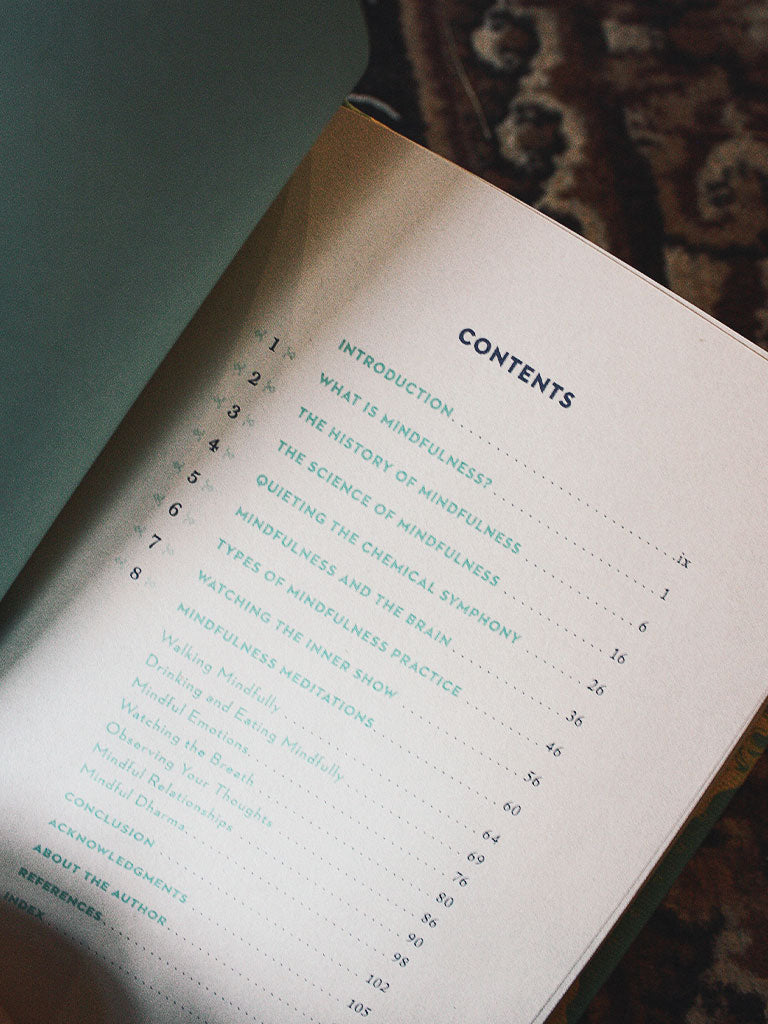 CONTENTS
INTRODUCTION ix
1 WHAT IS MINDFULNESS? 1
2 THE HISTORY OF MINDFULNESS 6
3 THE SCIENCE OF MINDFULNESS 16
4 QUIETING THE CHEMICAL SYMPHONY 26
5 MINDFULNESS AND THE BRAIN 36
6 TYPES OF MINDFULNESS PRACTICE 46
7 WATCHING THE INNER SHOW 56
8 MINDFULNESS MEDITATIONS 60
Walking Mindfully 64
Drinking and Eating Mindfully 69
Mindful Emotions 76
Watching the Breath 80
Observing Your Thoughts 86
Mindful Relationships 90
Mindful Dharma 98
CONCLUSION 102
ACKNOWLEDGMENTS 105
ABOUT THE AUTHOR
REFERENCES
INDEX